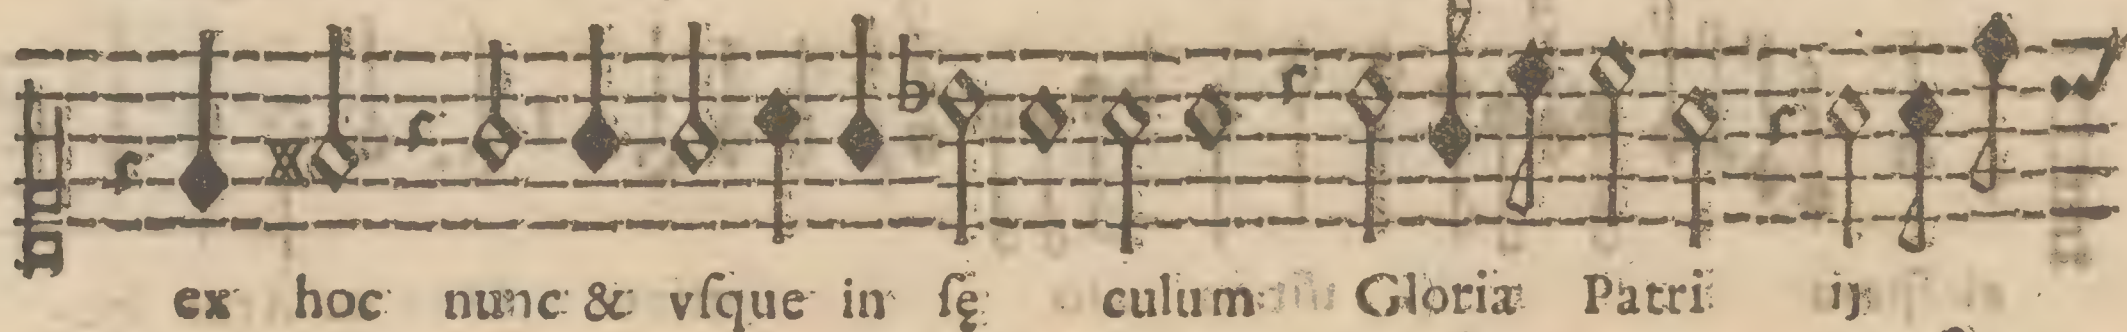 ex hoc nunc & vſque in ſę culum Gloria Patri ij